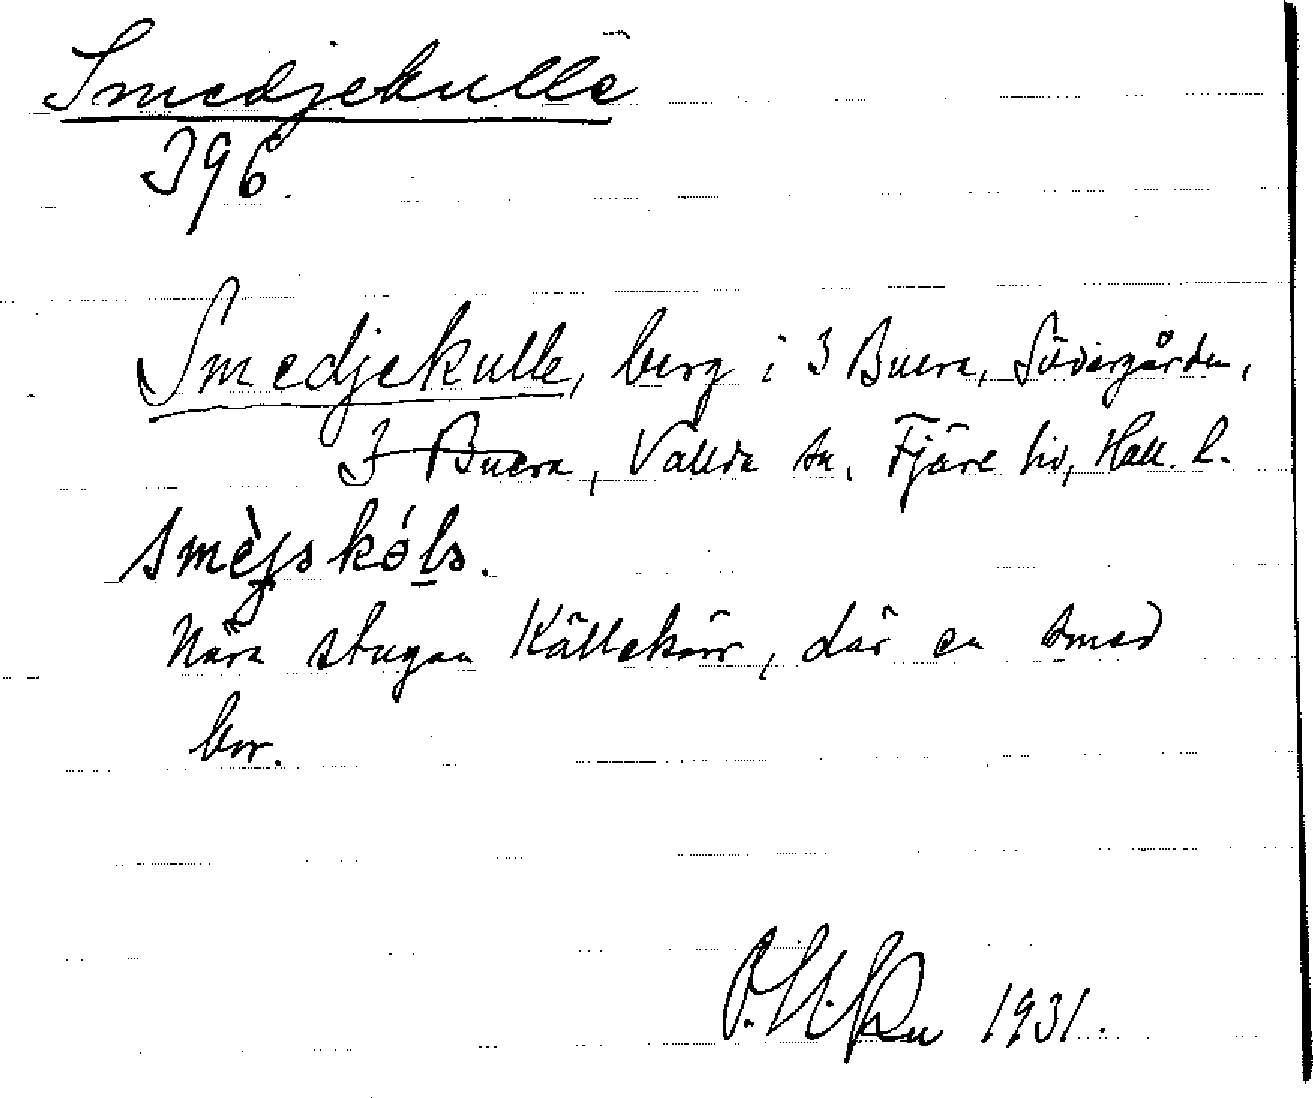 Smedjekulle
396.
Smedjekulle, berg i 3 Buera, Södergården,
3 Buera, Vallda sn. Fjäre hd, Hall. l.
Nära stugan Källekärr, där en smed
bor.
1931.